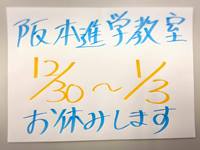 阪本進学教室
12/30〜1/3
お休みします